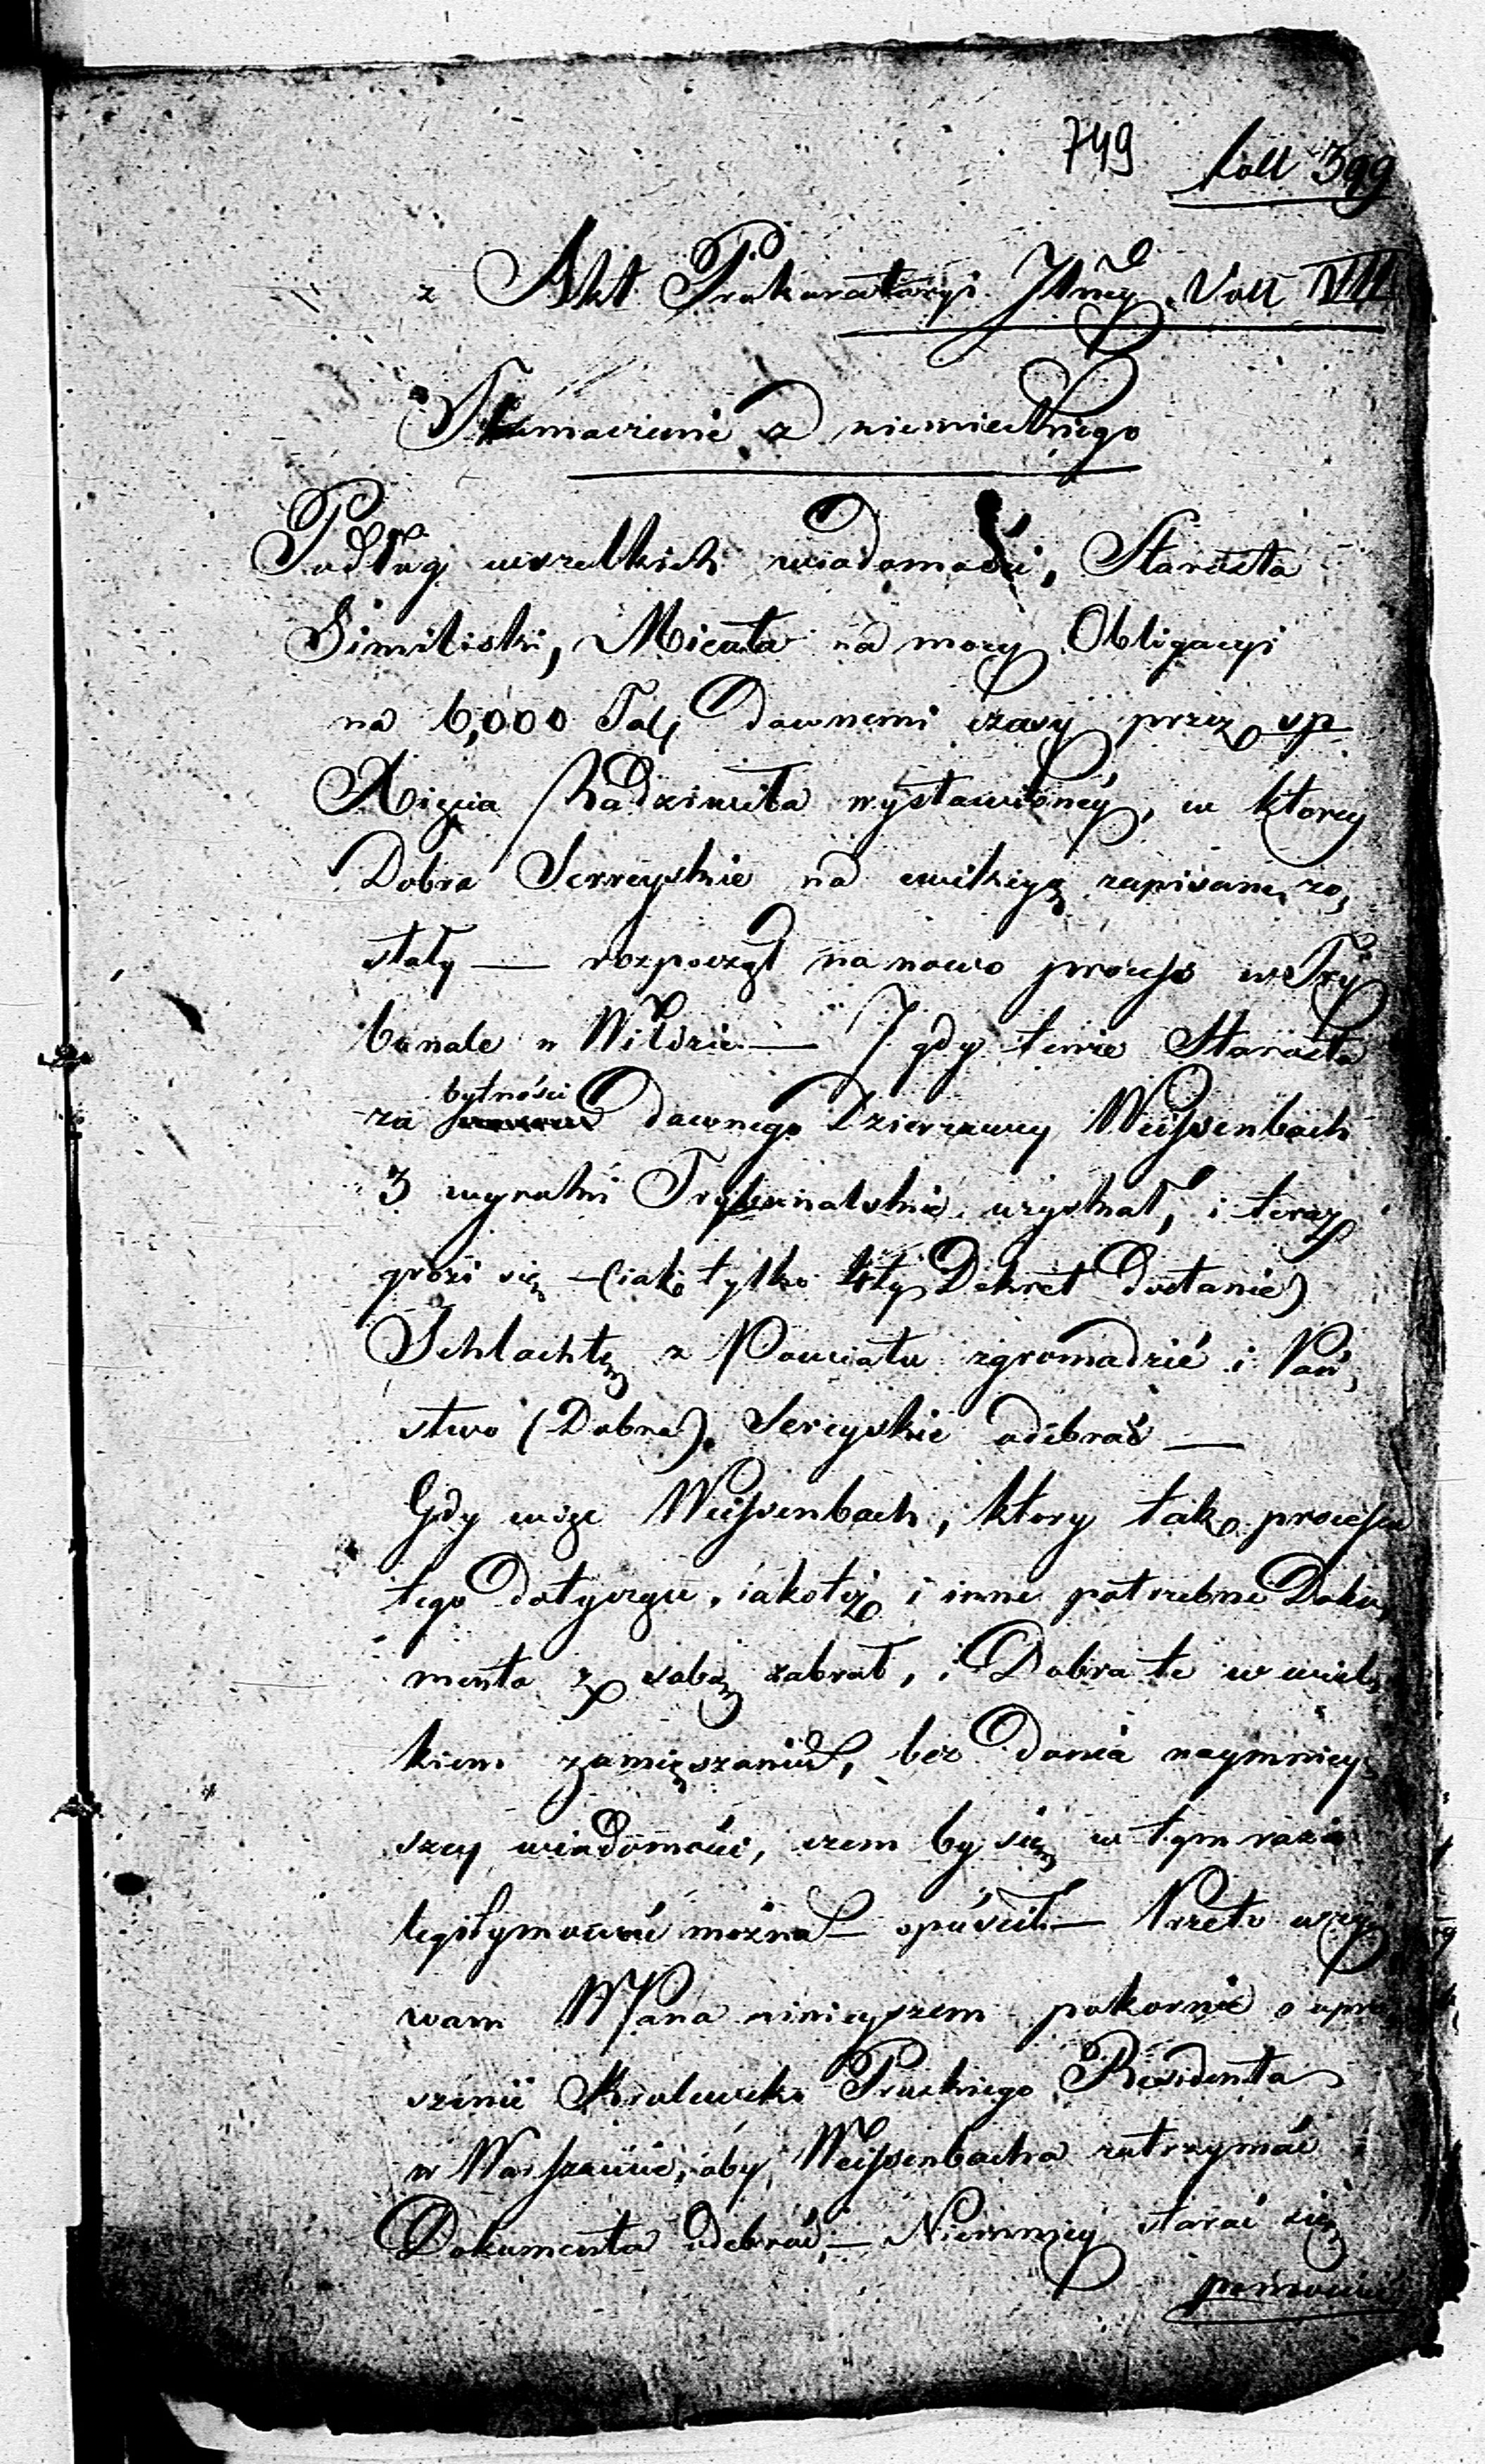 749 foll 399
z Akt Prokuratoryi Jlney Voll VII
Tłumaczenie z niemieckiego
Podług wszelkich wiadomości, Starosta
Similiski, Micuta na mocy Obligacyi
na 6,000 Tal, dawnemi czasy przez sp
Xięcia Radziwiła wystawioney, w ktorey
Dobra Serreyskie na ewikcyą zapisane zo,
stały — rozpoczął na nowo process w Try
bunale w Wilnie — I gdy tenże Starosta
za bytności dawnego Dzierzawcy Weissenbach
3 wyroki Trybunalskie uzyskał, i teraz
grozi się — (iak tylko 4ty Dekret dostanie)
Schlachtę z Powiatu zgromadzić i Pań,
stwo (Dobra) Sereyskie odebrać —
Gdy więc Weissenbach, ktory tak processu
tego dotyczące, iakoteż i inne potrzebne Doku,
menta z sobą zabrał, i Dobra te w wiel,
kiem zamięszaniu, bez dania naymniey,
szey wiadomości, czem by się w tym razie
legitymować można — opuścił — Przeto wzy,
wam WPana ninieyszem pokornie o upra
szenie Krolewsko Pruskiego Residenta
w Warszawie, aby Weissenbacha zatrzymać
Dokumenta odebrać, — Niemniey starać się
ponowić